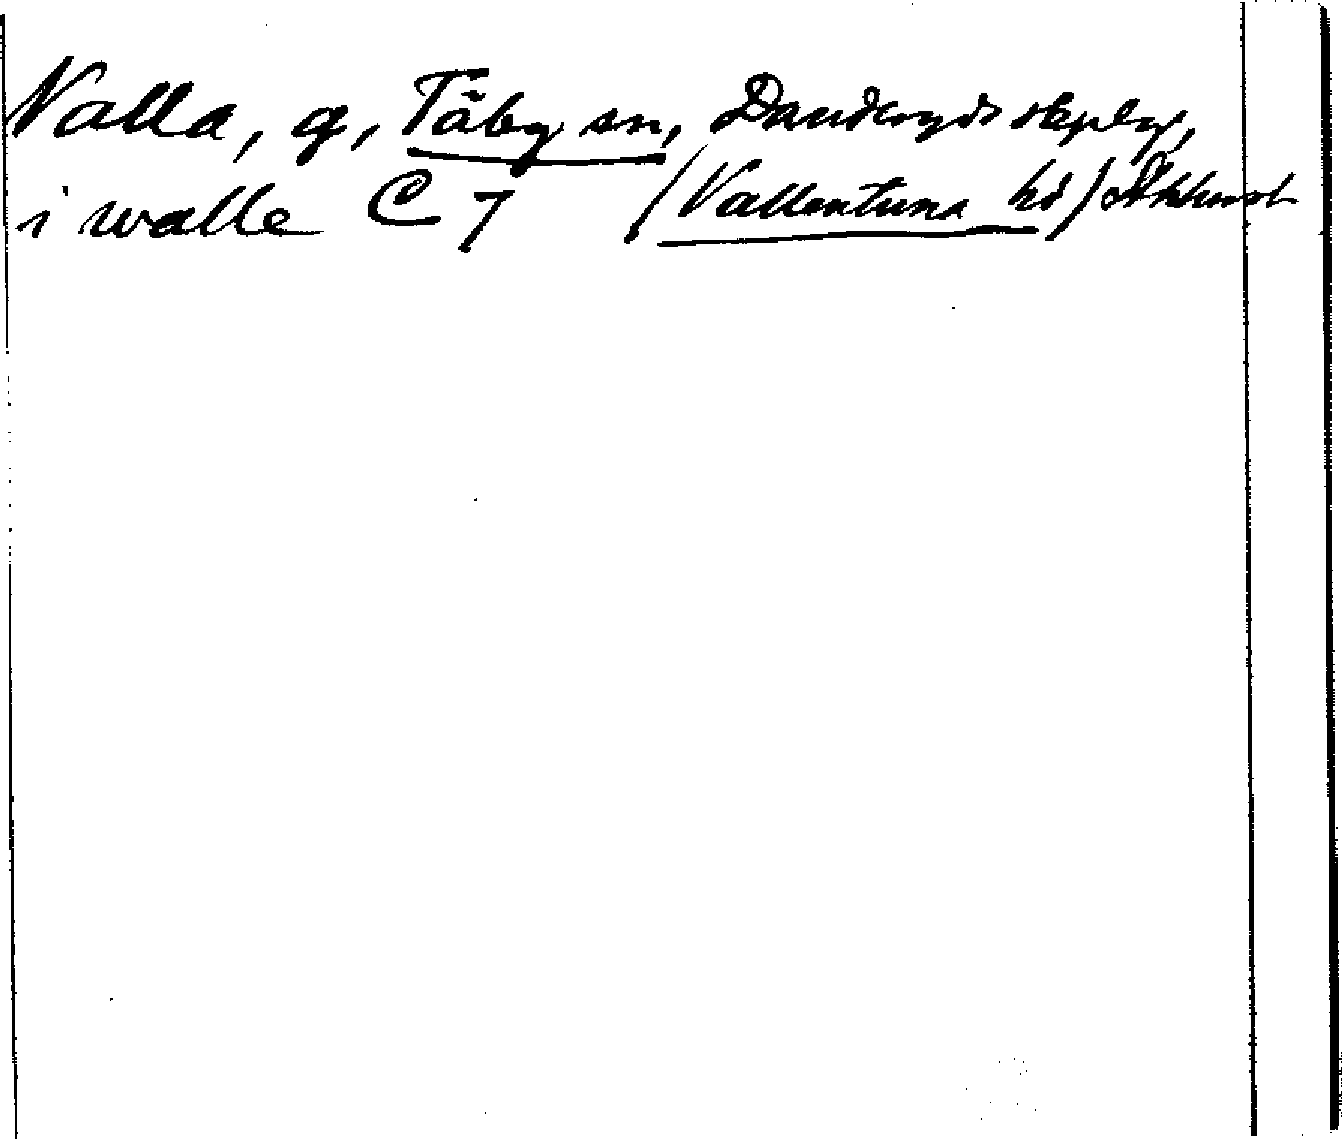 Valla, g, Täby sn, Danderyds skeplag,
i walle C 7 (Vallentuna hd)